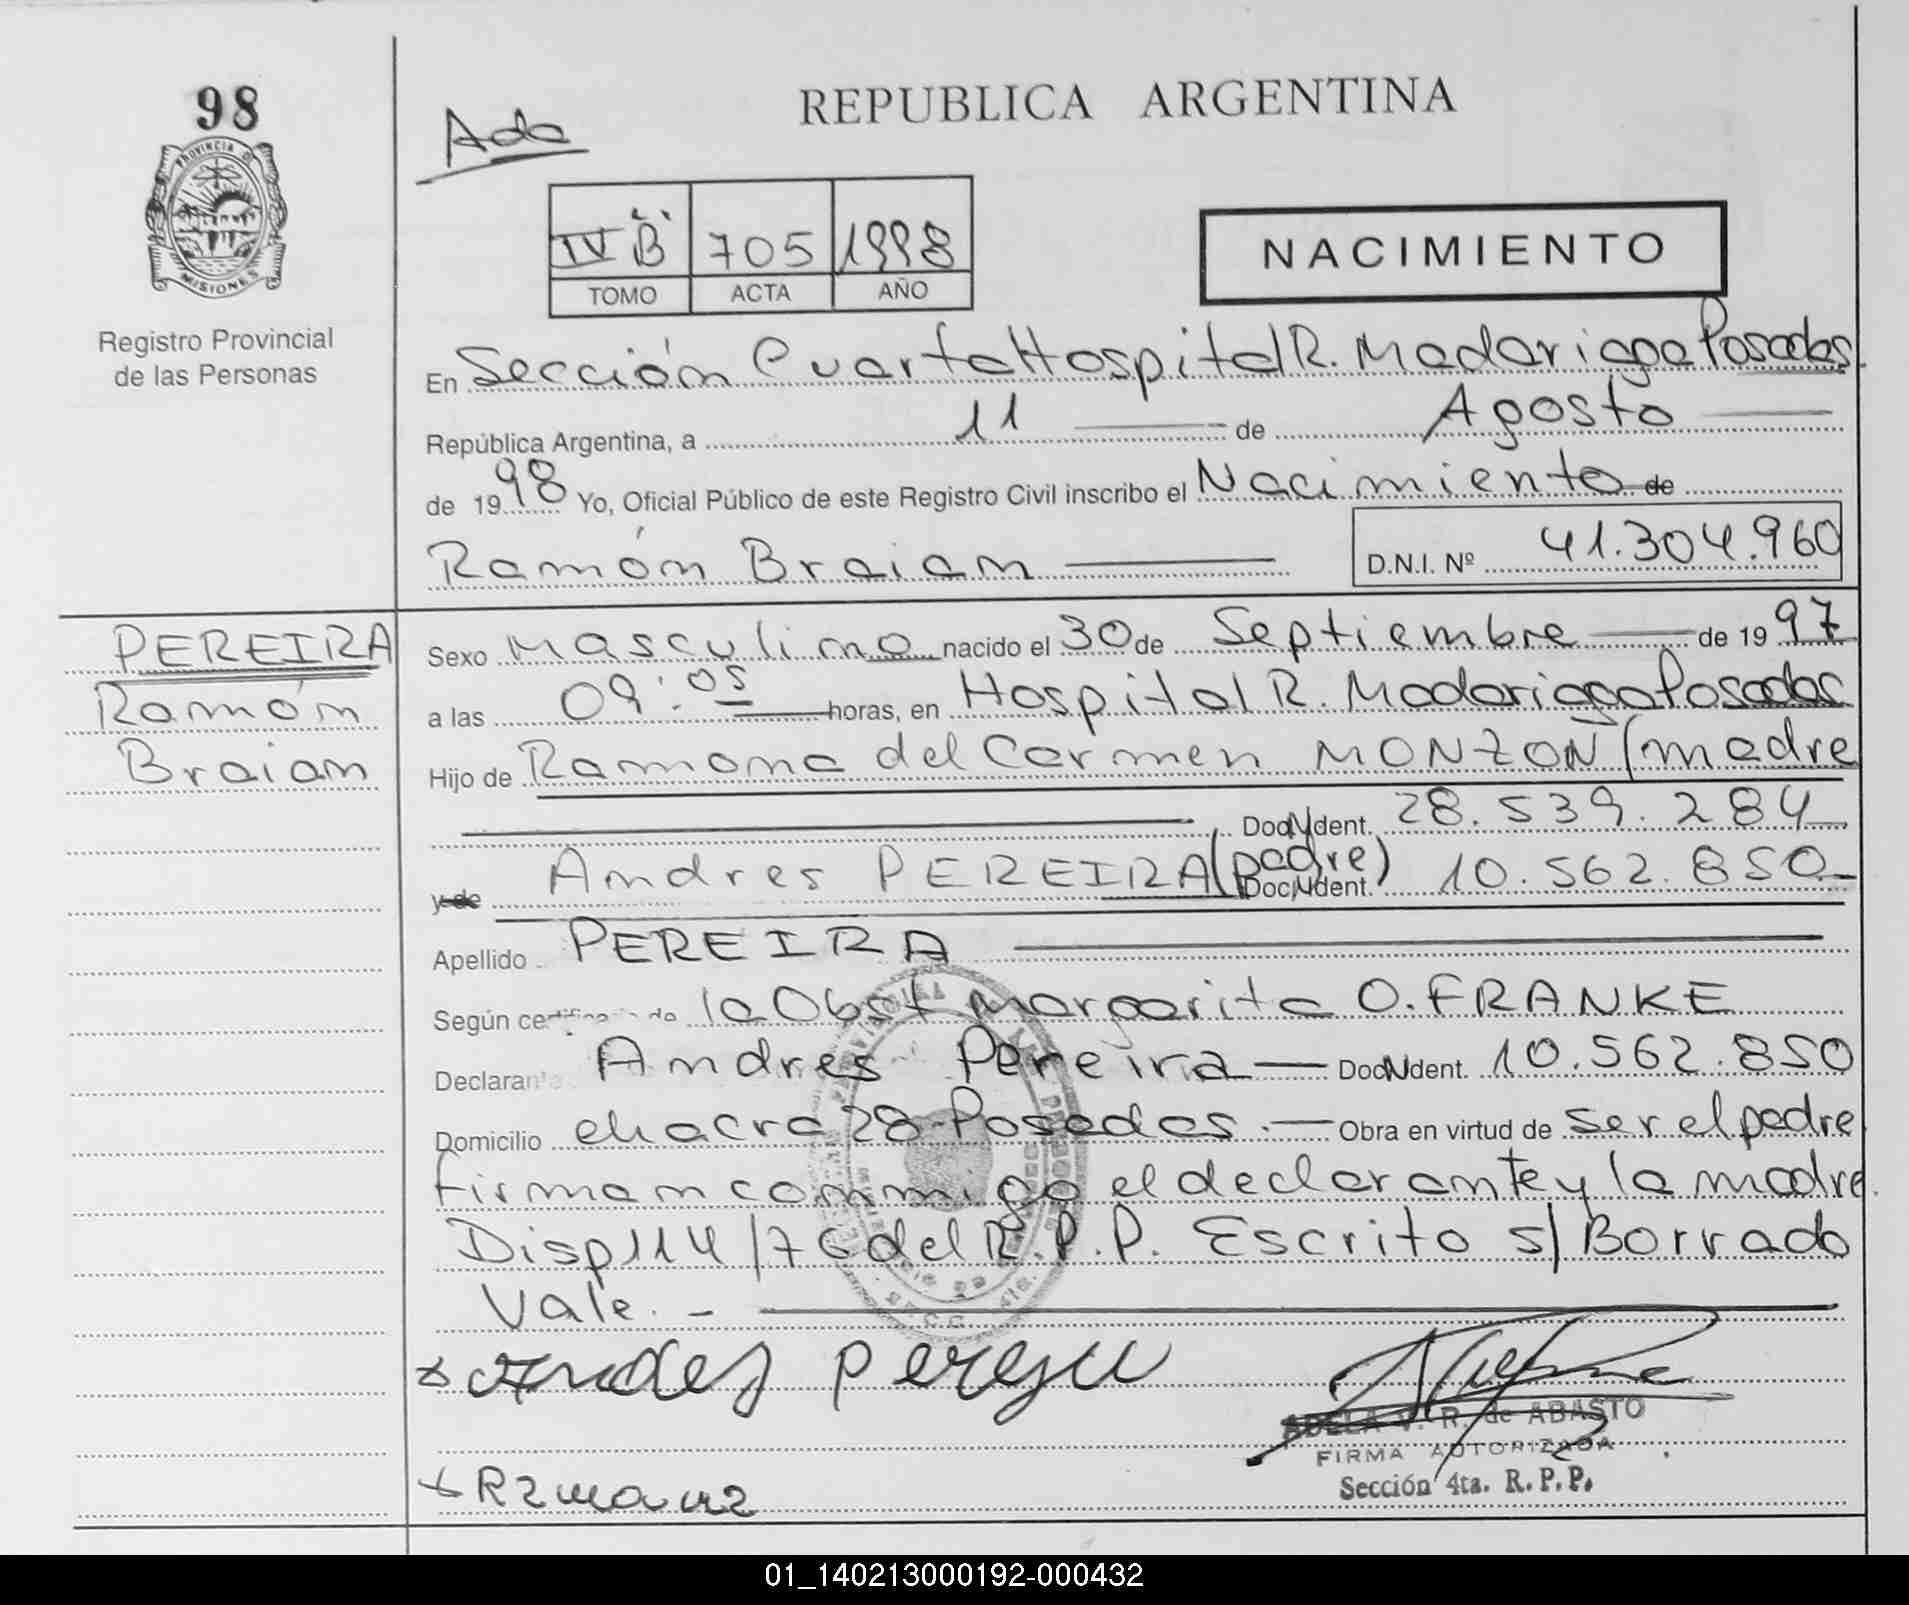 98
Ada
REPUBLICA ARGENTINA
PROVINCIA DE MISIONES
IV B 705 1998
TOMO ACTA AÑO
NACIMIENTO
Registro Provincial
de las Personas
En Sección Cuarta Hospital R. Madariaga Posadas
República Argentina, a 11 de Agosto
de 1998 Yo, Oficial Público de este Registro Civil inscribo el Nacimiento de
Ramón Braian D.N.I. Nº 41.304.960
PEREIRA
Ramón
Braian
Sexo Masculino nacido el 30 de Septiembre de 1997
a las 09:05 horas, en Hospital R. Madariaga Posadas
Hijo de Ramona del Carmen MONZON (madre
Doc. Ident. 28.539.284
y de Andres PEREIRA (padre) Doc. Ident. 10.562.850
Apellido PEREIRA
Según certificado de la Obst Margarita O. FRANKE
Declarante Andres Pereira — Doc. Ident. 10.562.850
Domicilio chacra 28-Posadas.— Obra en virtud de ser el padre
firman conmigo el declarante y la madre.
Disp 114/76 del R.P.P. Escrito s/Borrado
Vale.-
x Andres Pereira
ADELA V. R. de ABASTO
FIRMA AUTORIZADA
Sección 4ta. R. P. P.
x Ramona
01_140213000192-000432